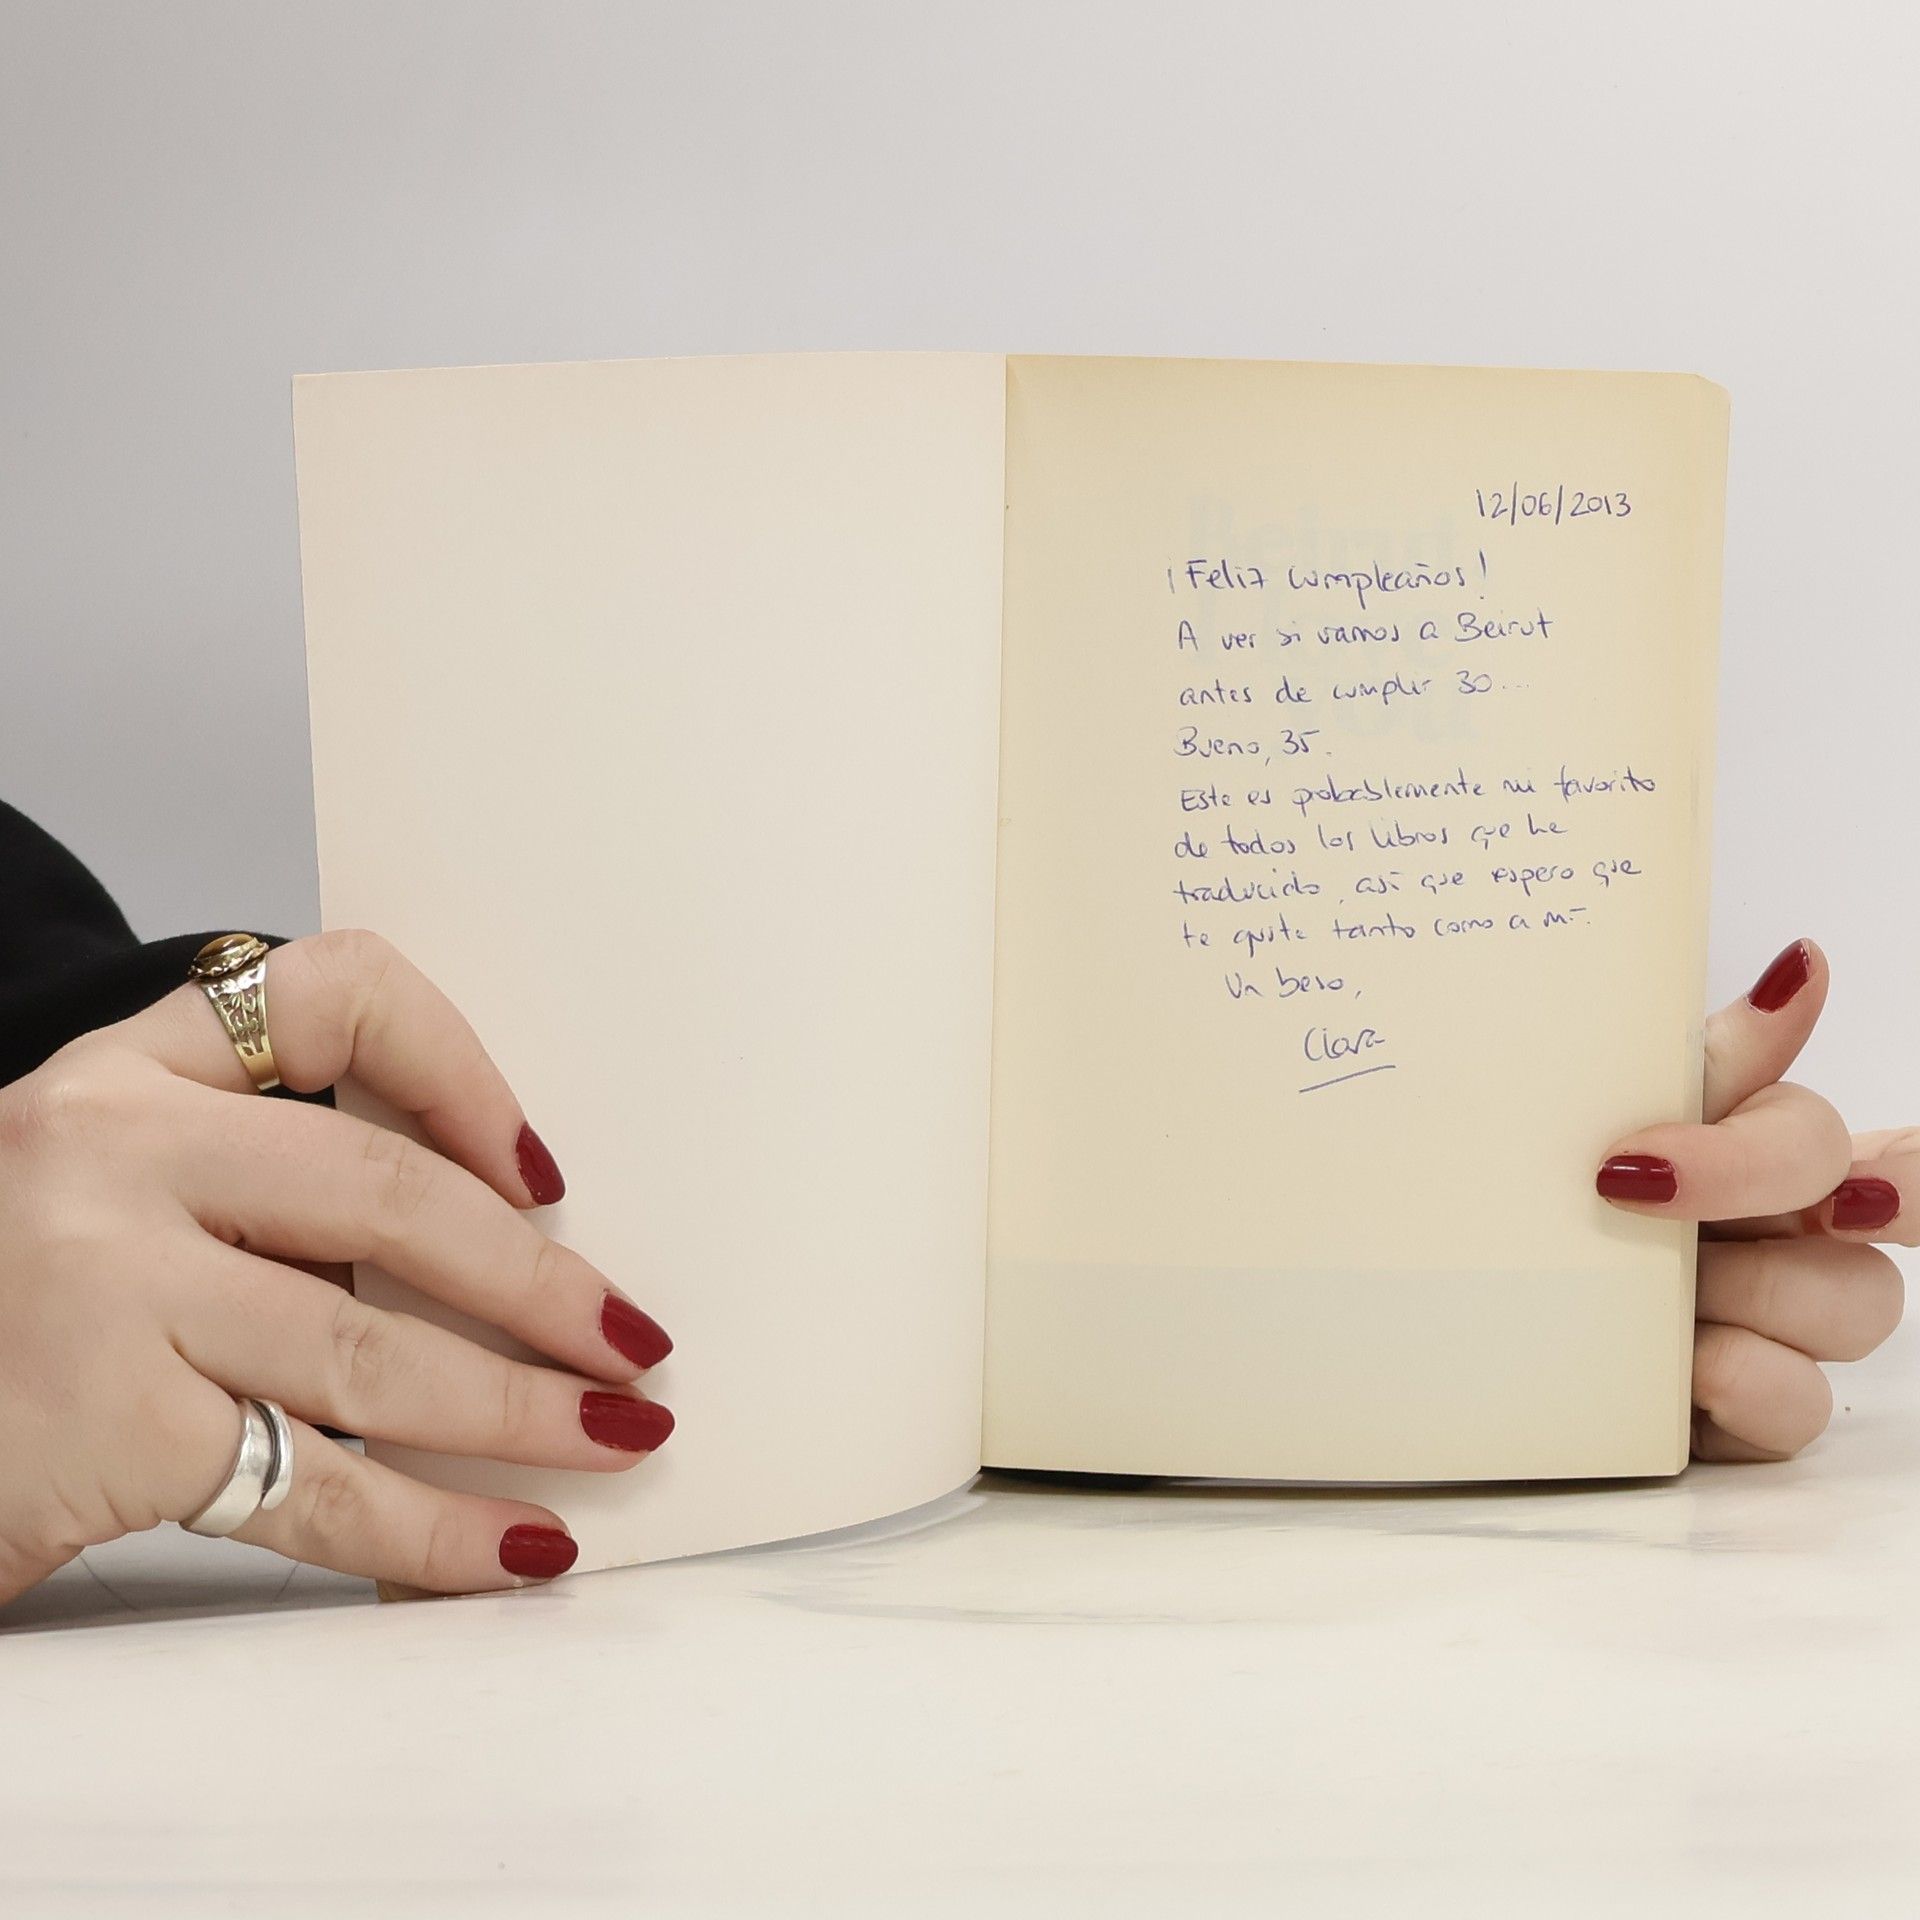 12/06/2013
¡Feliz cumpleaños!
A ver si vamos a Beirut
antes de cumplir 30...
Bueno, 35.
Este es probablemente mi favorito
de todos los libros que he
traducido, así que espero que
te guste tanto como a mí.
Un beso,
Clara